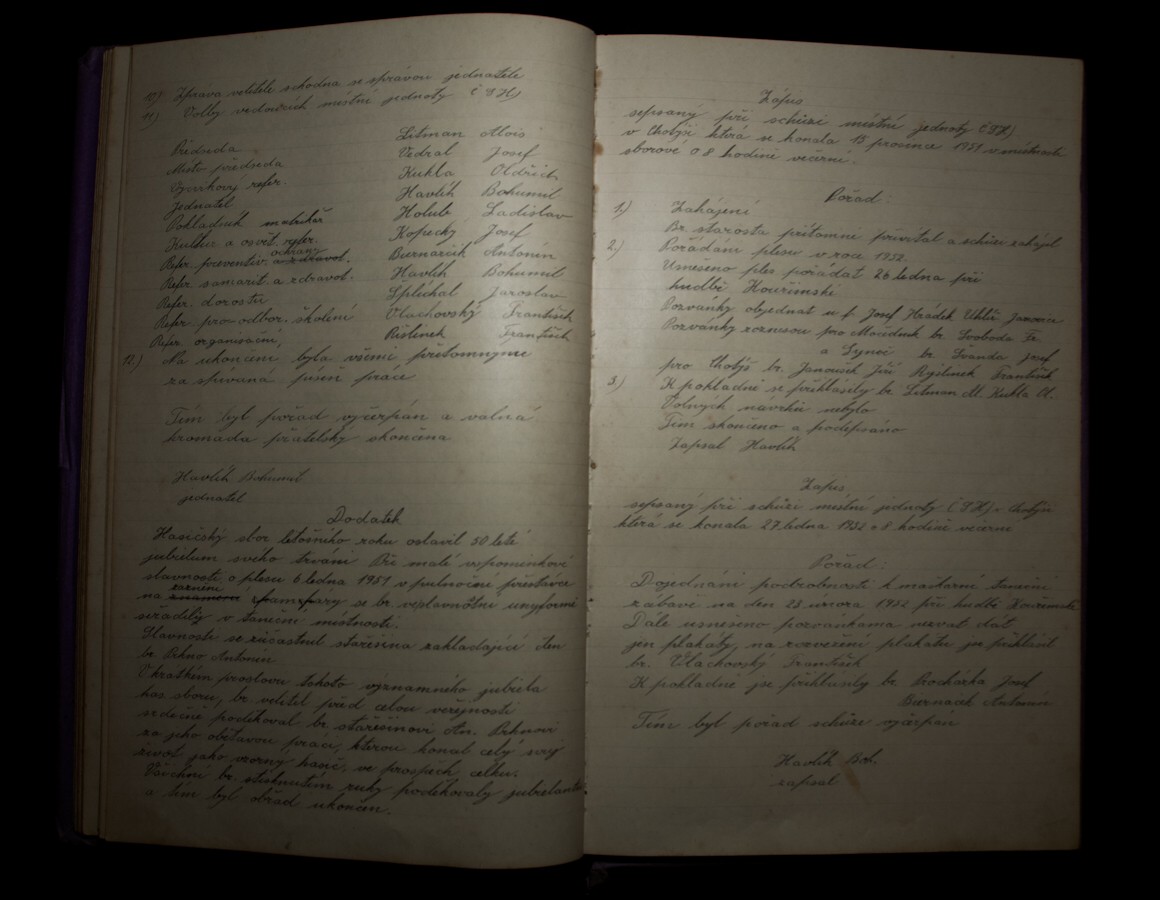 10) Zpráva velitele schodna se správou jednatele
11) Volby vedoucích místní jednoty ČSH)
Předseda Litman Alois
Místo předseda Vedral Josef
Výcvikový refer. Kukla Oldřich
Jednatel Havlík Bohumil
Pokladník matrikář Holub Ladislav
Kultur a osvět. refer. Kopecký Josef
Refer. preventiv. ochrany Biernacik Antonín
Refer. samarit a zdravot. Havlík Bohumil
Refer. dorostu Splíchal Jaroslav
Refer. pro odbor. školení Vlachovský František
Refer. organisační, Rislinek František
12.) Na ukončení byla všemi přítomnými
zaspívaná píseň práce
Tím byl pořad vyčerpán a valná
hromada přátelsky skončena
Havlík Bohumil
jednatel
Dodatek
Hasičský sbor letošního roku oslavil 50 leté
jubileum svého trvání Při malé vspomínkové
slavnosti o plesu 6 ledna 1951 v pulnoční přestávce
na zaznění famfáry se br. veplavnötlní unyformě
seřadily v taneční místnosti.
Slavnosti se zúčastnil stařešina zakladající člen
br. Prkno Antonín
V krátkém proslovu tohoto významného jubilea
has sboru, br. velitel před celou veřejností
srdečně poděkoval br. stařešinovi An. Prknovi
za jeho obětavou práci, kterou konal celý svůj
život jako vzorný hasič, ve prospěch celku.
Všichni br. stisknutím ruky poděkovaly jubilantu
a tím byl obřad ukončen.
Zápis
sepsaný při schůzi místní jednoty ČSH)
v Chotýši která se konala 15 prosince 1951 v místnosti
sborové o 8 hodině večerní.
Pořad:
1.) Zahájení
Br. starosta přítomné přivítal a schůzi zahájil
2.) Pořádání plesu v roce 1952.
Usnešeno ples pořádat 26 ledna při
hudbě Kouřimské
Pozvánky objednat u f. Josef Hrádek Uhlíř. Janovice
Pozvánky roznesou pro Močedník br. Svoboda Fr
a Synoč br. Švanda Josef
pro Chotýš br. Janoušek Jiří Ryšlinek František
3.) K pokladně se přihlásily br. Litman M. Kukla O.
Volných návrhů nebylo
Tím skončeno a podepsáno
Zapsal Havlík
Zápis
sepsaný při schůzi místní jednoty ČSH) v Chotýši
která se konala 27 ledna 1952 o 8 hodině večerní
Pořad:
Dojednání podrobnosti k maškarní taneční
zábavě na den 23 února 1952 při hudbě Kouřimské
Dále usnešeno pozvánkama nezvat dát
jen plakáty, na rozvešení plakátu jse přihlásil
br. Vláchovský František
K pokladně jse přihlásily br. Procházka Josef
Biernacik Antonín
Tím byl pořad schůze vyčerpán
Havlík Boh.
zapsal